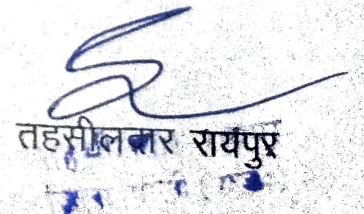 तहसीलदार रायपुर